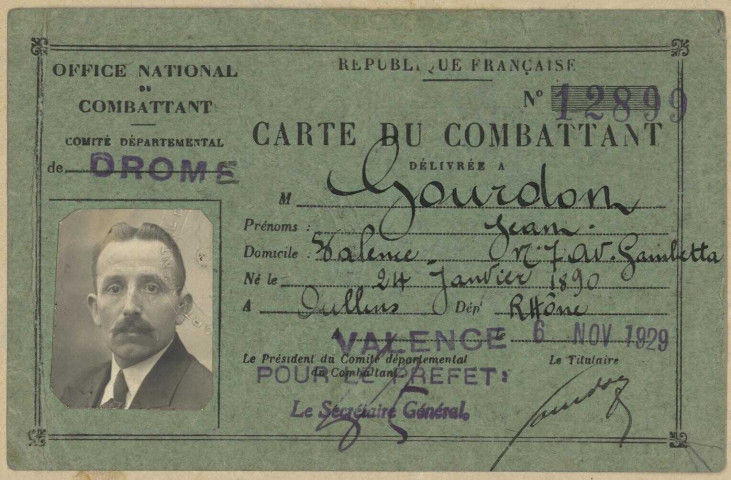 OFFICE NATIONAL
DU
COMBATTANT
COMITÉ DÉPARTEMENTAL
de DROME
RÉPUBLIQUE FRANÇAISE
N° 12899
CARTE DU COMBATTANT
DÉLIVRÉE A
M Gourdon
Prénoms : Jean.
Domicile : Valence - N. 7 Av. Gambetta
Né le 24 Janvier 1890
A Oullins Dépt Rhône
A VALENCE LE 6 NOV 1929
Le Président du Comité départemental
du Combattant
Le Titulaire
POUR LE PREFET:
Le Secrétaire Général.
Gourdon